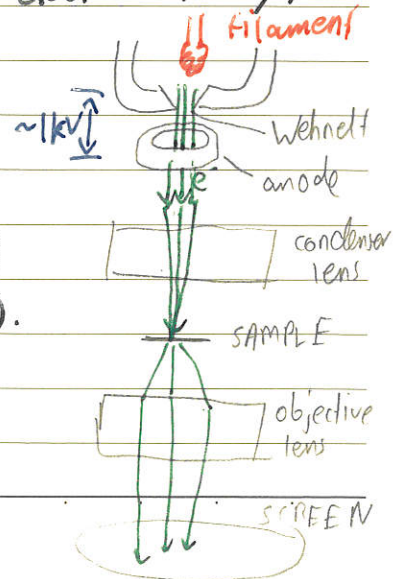 filament
~1kV
Wehnelt
e
anode
condenser
lens
).
SAMPLE
objective
lens
SCREEN